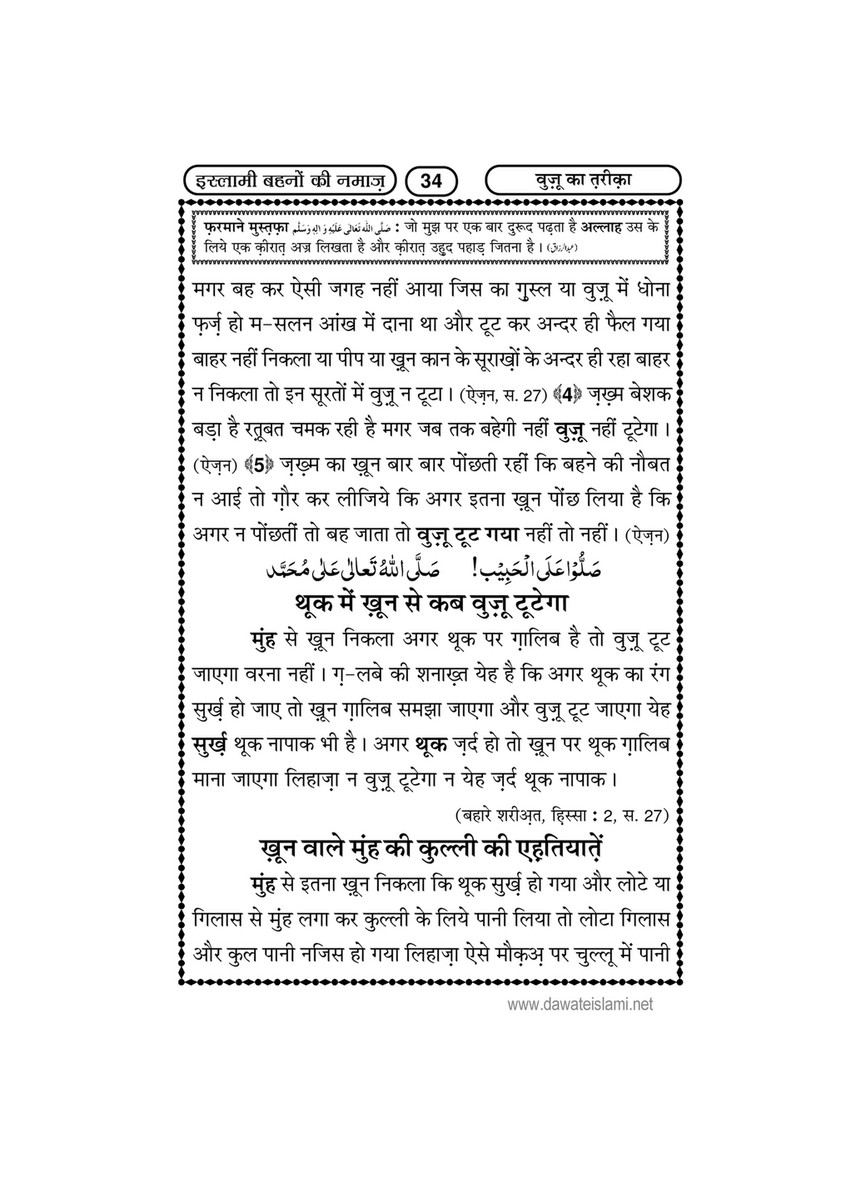 इस्लामी बहनों की नमाज़ 34 वुज़ू का त़रीक़ा
फ़रमाने मुस्त़फ़ा صَلَّى اللّٰهُ تَعَالٰى عَلَيْهِ وَاٰلِهٖ وَسَلَّم : जो मुझ पर एक बार दुरूद पढ़ता है अल्लाह उस के
लिये एक क़ीरात़ अज्र लिखता है और क़ीरात़ उहुद पहाड़ जितना है । (عبدالرزاق)
मगर बह कर ऐसी जगह नहीं आया जिस का ग़ुस्ल या वुज़ू में धोना
फ़र्ज़ हो म-सलन आंख में दाना था और टूट कर अन्दर ही फैल गया
बाहर नहीं निकला या पीप या ख़ून कान के सूराख़ों के अन्दर ही रहा बाहर
न निकला तो इन सूरतों में वुज़ू न टूटा । (ऐज़न, स. 27) ﴾4﴿ ज़ख़्म बेशक
बड़ा है रत़ूबत चमक रही है मगर जब तक बहेगी नहीं वुज़ू नहीं टूटेगा ।
(ऐज़न) ﴾5﴿ ज़ख़्म का ख़ून बार बार पोंछती रहीं कि बहने की नौबत
न आई तो ग़ौर कर लीजिये कि अगर इतना ख़ून पोंछ लिया है कि
अगर न पोंछतीं तो बह जाता तो वुज़ू टूट गया नहीं तो नहीं । (ऐज़न)
صَلُّوْا عَلَى الْحَبِيْب! صَلَّى اللّٰهُ تَعَالٰى عَلٰى مُحَمَّد
थूक में ख़ून से कब वुज़ू टूटेगा
मुंह से ख़ून निकला अगर थूक पर ग़ालिब है तो वुज़ू टूट
जाएगा वरना नहीं । ग़-लबे की शनाख़्त येह है कि अगर थूक का रंग
सुर्ख़ हो जाए तो ख़ून ग़ालिब समझा जाएगा और वुज़ू टूट जाएगा येह
सुर्ख़ थूक नापाक भी है । अगर थूक ज़र्द हो तो ख़ून पर थूक ग़ालिब
माना जाएगा लिहाज़ा न वुज़ू टूटेगा न येह ज़र्द थूक नापाक ।
(बहारे शरीअ़त, हि़स्सा : 2, स. 27)
ख़ून वाले मुंह की कुल्ली की एह़तियात़ें
मुंह से इतना ख़ून निकला कि थूक सुर्ख़ हो गया और लोटे या
गिलास से मुंह लगा कर कुल्ली के लिये पानी लिया तो लोटा गिलास
और कुल पानी नजिस हो गया लिहाज़ा ऐसे मौक़अ़ पर चुल्लू में पानी
www.dawateislami.net